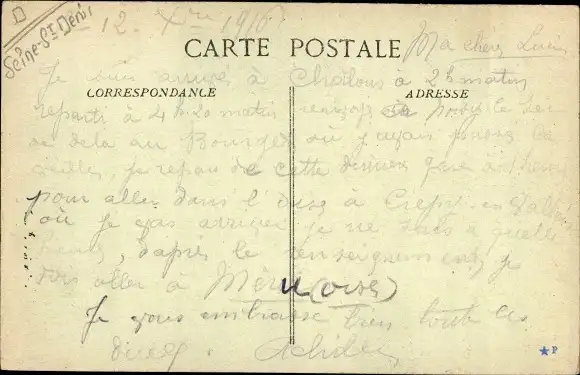 Seine-St Denis
12. Xbre 1916
CARTE POSTALE
Ma chère
CORRESPONDANCE
ADRESSE
Je suis arrivé à Châlons à 2h matin
reparti à 4h20 matin pour le
de là au Bourget où j'avais
je repars de cette dernière gare
pour aller dans l'Oise à Crépy en
où je vais arriver je ne sais à quelle
heure, d'après le renseignement, je
dois aller à Méru (Oise)
Je vous embrasse bien toute les
deux.
P